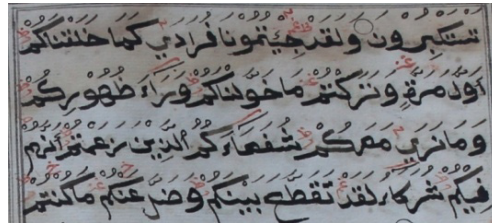 تَسْتَكْبِرُونَ وَلَقَدْ جِئْتُمُونَا فُرَادَىٰ كَمَا خَلَقْنَاكُمْ
أَوَّلَ مَرَّةٍ وَتَرَكْتُمْ مَا خَوَّلْنَاكُمْ وَرَاءَ ظُهُورِكُمْ
وَمَا نَرَىٰ مَعَكُمْ شُفَعَاءَكُمُ الَّذِينَ زَعَمْتُمْ أَنَّهُمْ
فِيكُمْ شُرَكَاءُ لَقَدْ تَقَطَّعَ بَيْنَكُمْ وَضَلَّ عَنْكُمْ مَا كُنْتُمْ